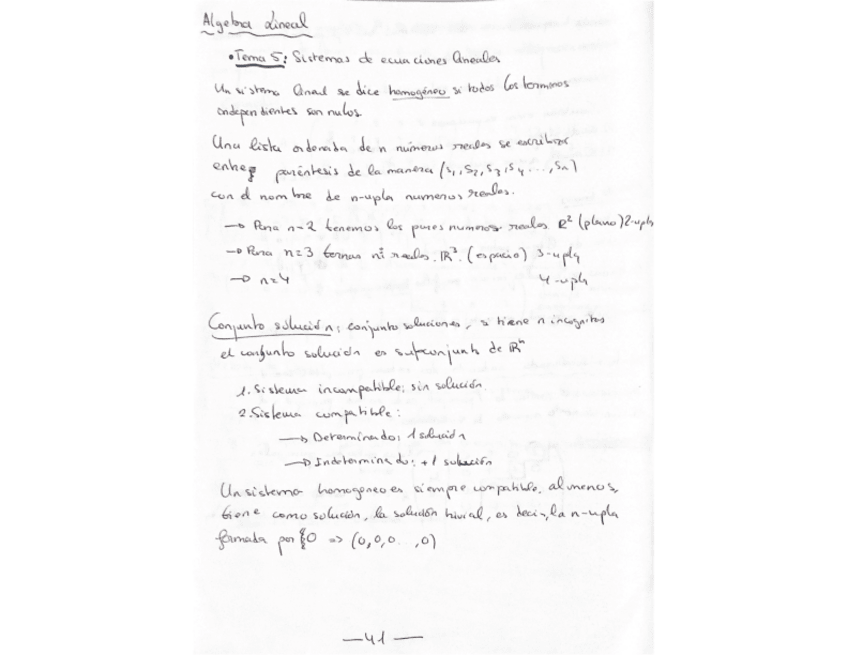 Algebra Lineal
• Tema 5: Sistemas de ecuaciones lineales
Un sistema lineal se dice homogéneo si todos los terminos
independientes son nulos.
Una lista ordenada de n números reales se escribirá
entre paréntesis de la manera (s₁, s₂, s₃, s₄ ..., sₙ)
con el nombre de n-upla numeros reales.
→ Para n=2 tenemos los pares numeros reales R² (plano) 2-upla
→ Para n=3 ternas nº reales. R³. (espacio) 3-upla
→ n=4 4-upla
Conjunto solución; conjunto soluciones, si tiene n incognitas
el conjunto solución es subconjunto de Rⁿ
1. Sistema incompatible; sin solución.
2. Sistema compatible:
→ Determinado: 1 solución
→ Indeterminado: +1 solución
Un sistema homogeneo es siempre compatible, al menos,
tiene como solución, la solución trivial, es decir, la n-upla
formada por 0 => (0,0,0...,0)
—41—